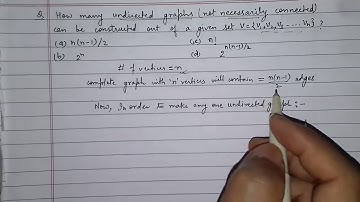 Q. How many undirected graphs (not necessarily connected)
can be constructed out of a given set V = {V₁, V₂, V₃ .... Vₙ} ?
(a) n(n-1)/2 (c) n!
(b) 2ⁿ (d) 2^(n(n-1)/2)
# of vertices = n
complete graph with 'n' vertices will contain = n(n-1)/2 edges
Now, In order to make any one undirected graph :-